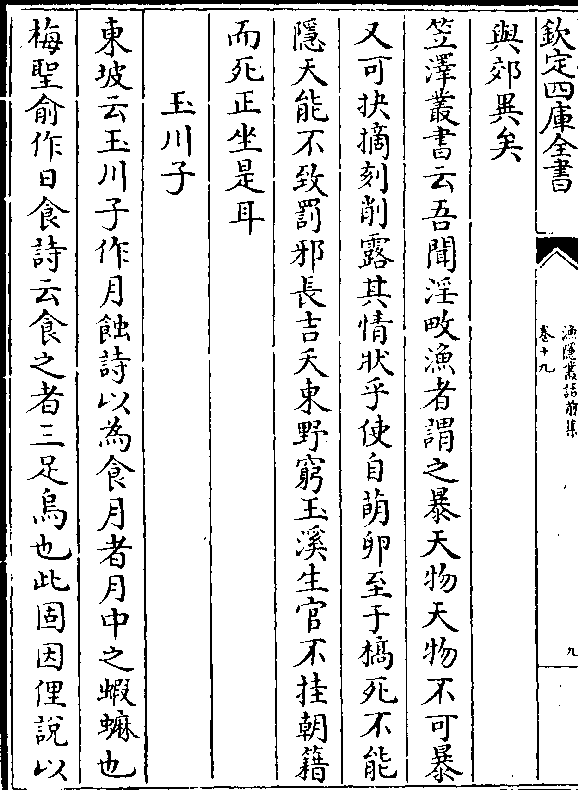 欽定四庫全書
漁隱叢話前集
卷十九
九
與郊異矣
笠澤叢書云吾聞淫畋漁者謂之暴天物天物不可暴
又可抉摘刻削露其情狀乎使自萌卵至于槁死不能
隱天能不致罰邪長吉夭東野窮玉溪生官不挂朝籍
而死正坐是耳
玉川子
東坡云玉川子作月蝕詩以為食月者月中之蝦蟆也
梅聖俞作日食詩云食之者三足烏也此固因俚說以